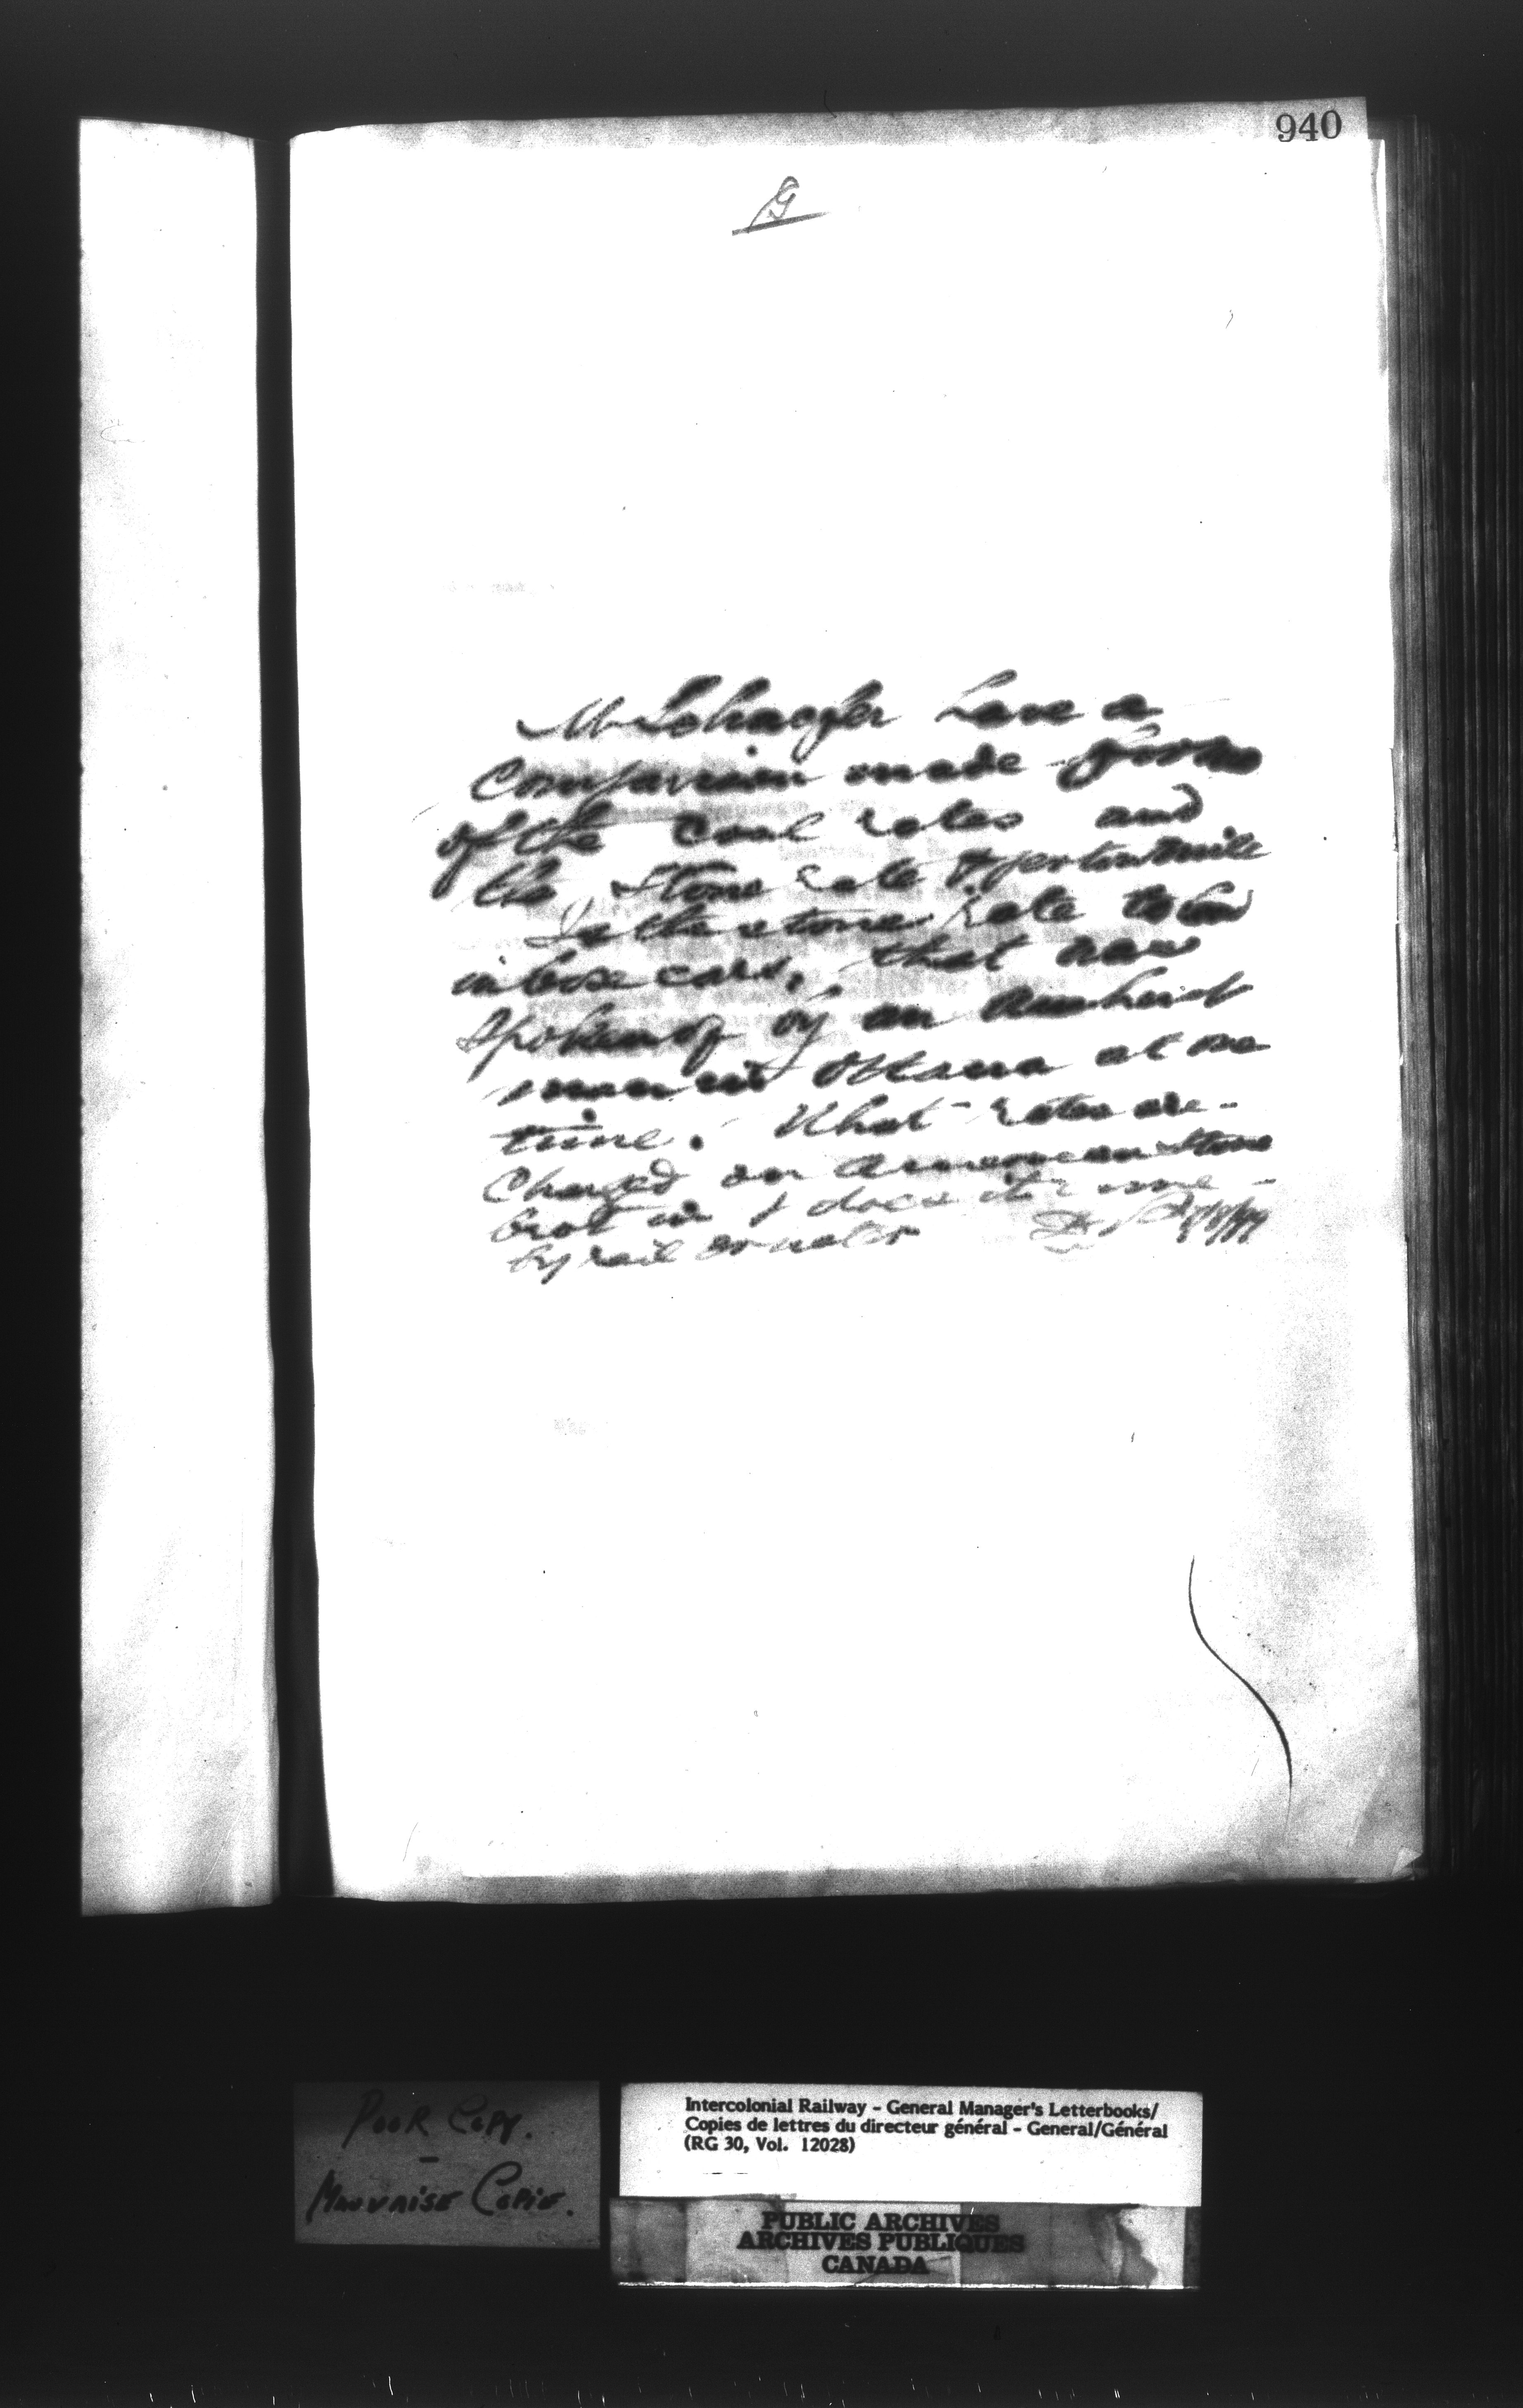 940
G
Mr Schaefer have a
Comparison made
of the coal rates and
the Stone rate per ton mile
Is the stone rate to be
in box cars, that was
Spoken of by an Amherst
man in Ottawa at one
time. What rates are
Charged on American stone
brot in & does it come
by rail or water
POOR COPY.
—
MAUVAISE COPIE.
Intercolonial Railway - General Manager's Letterbooks/
Copies de lettres du directeur général - General/Général
(RG 30, Vol. 12028)
PUBLIC ARCHIVES
ARCHIVES PUBLIQUES
CANADA